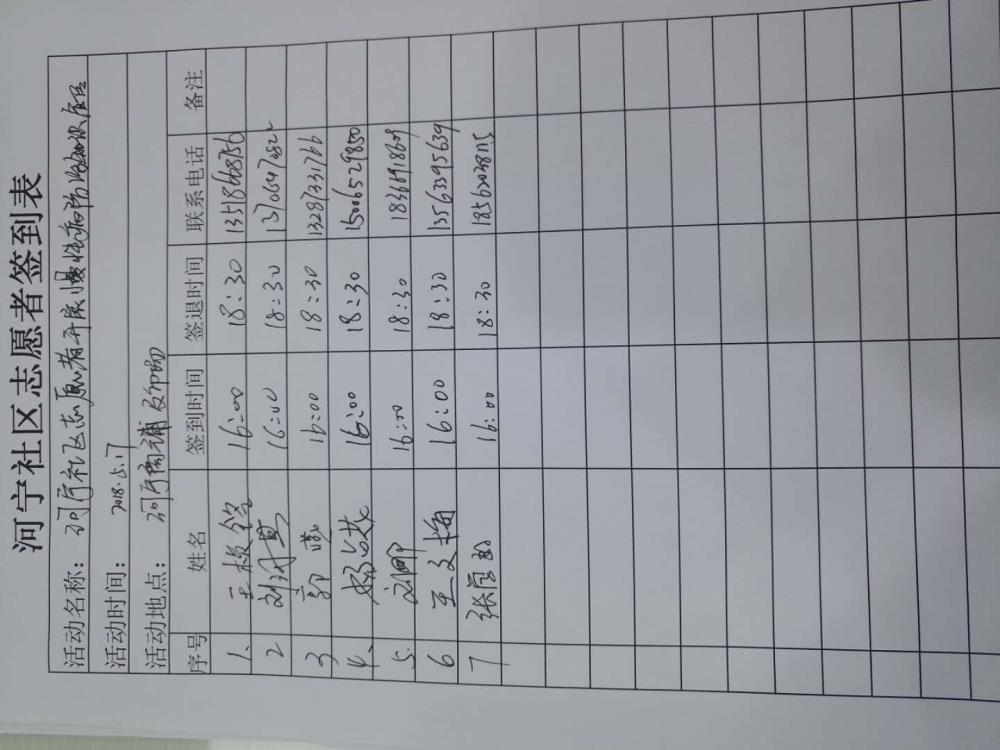 河宁社区志愿者签到表
活动名称：河宁社区志愿者开展慢性病防治知识宣传
活动时间：2018.5.17
活动地点：河宁商铺及邻
序号 姓名 签到时间 签退时间 联系电话 备注
1、 王 16:00 18:30 13518668756
2 刘 16:00 18:30
3 郭 16:00 18:30 13287331766
4、 杨 16:00 18:30 15006529850
5. 刘 16:00 18:30
6 王文梅 16:00 18:30 13563395639
7 张 16:00 18:30